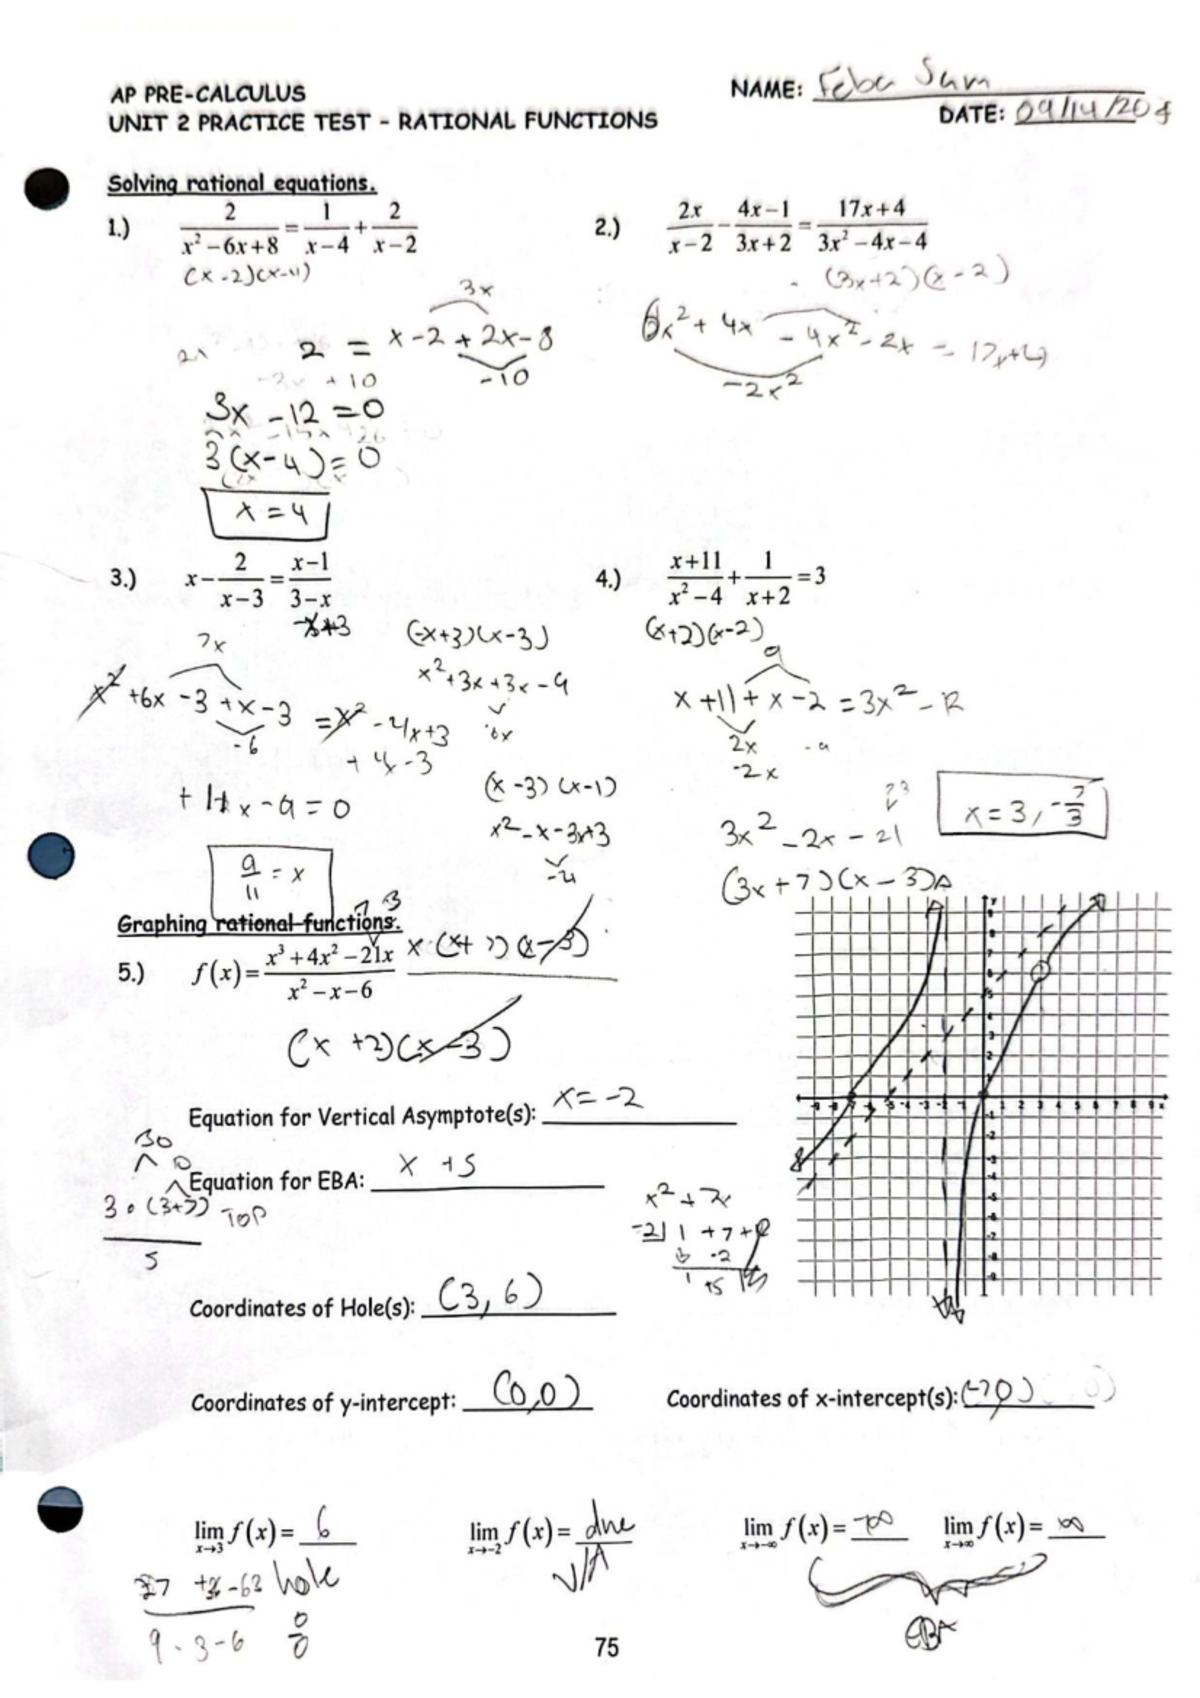 AP PRE-CALCULUS
NAME: Feba Sam
UNIT 2 PRACTICE TEST - RATIONAL FUNCTIONS
DATE: 09/14/20
Solving rational equations.
1.) 2/(x² – 6x + 8) = 1/(x – 4) + 2/(x – 2)
(x -2)(x-4)
3x
2 = x -2 + 2x - 8
-10
-3x + 10
3x - 12 = 0
3(x - 4) = 0
x = 4
2.) 2x/(x – 2) – (4x – 1)/(3x + 2) = (17x + 4)/(3x² – 4x – 4)
(3x+2)(x - 2)
6x² + 4x - 4x² - 2x = 17x+4
-2x²
3.) x – 2/(x – 3) = (x – 1)/(3 – x)
-x+3
7x
(-x+3)(x-3)
x²+3x+3x-9
6x
x² +6x -3 +x -3 = x² -4x+3
-6
+ 4x -3
(x -3) (x-1)
x² - x - 3x+3
-4
+ 11x - 9 = 0
9/11 = x
4.) (x + 11)/(x² – 4) + 1/(x + 2) = 3
(x+2)(x-2)
9
x +11 + x -2 = 3x² - 12
2x
-9
-2x
3x² - 2x - 21
(3x + 7)(x - 3)
x = 3, -7/3
Graphing rational functions.
7 3
5.) f(x) = (x³ + 4x² – 21x)/(x² – x – 6)
x (x+ 7) (x-3)
(x +2)(x-3)
Equation for Vertical Asymptote(s): x = -2
30
Equation for EBA: x +5
3 · (3+7) TOP
5
x² + 7x
-2| 1 +7 +0
-2
1 +5
Coordinates of Hole(s): (3, 6)
Coordinates of y-intercept: (0,0)
Coordinates of x-intercept(s): (-7,0)
lim x→3 f(x) = 6
hole
0/0
27 +36 -63
9 - 3 - 6
lim x→-2 f(x) = dne
V/A
lim x→-∞ f(x) = -∞
lim x→∞ f(x) = ∞
EBA
75